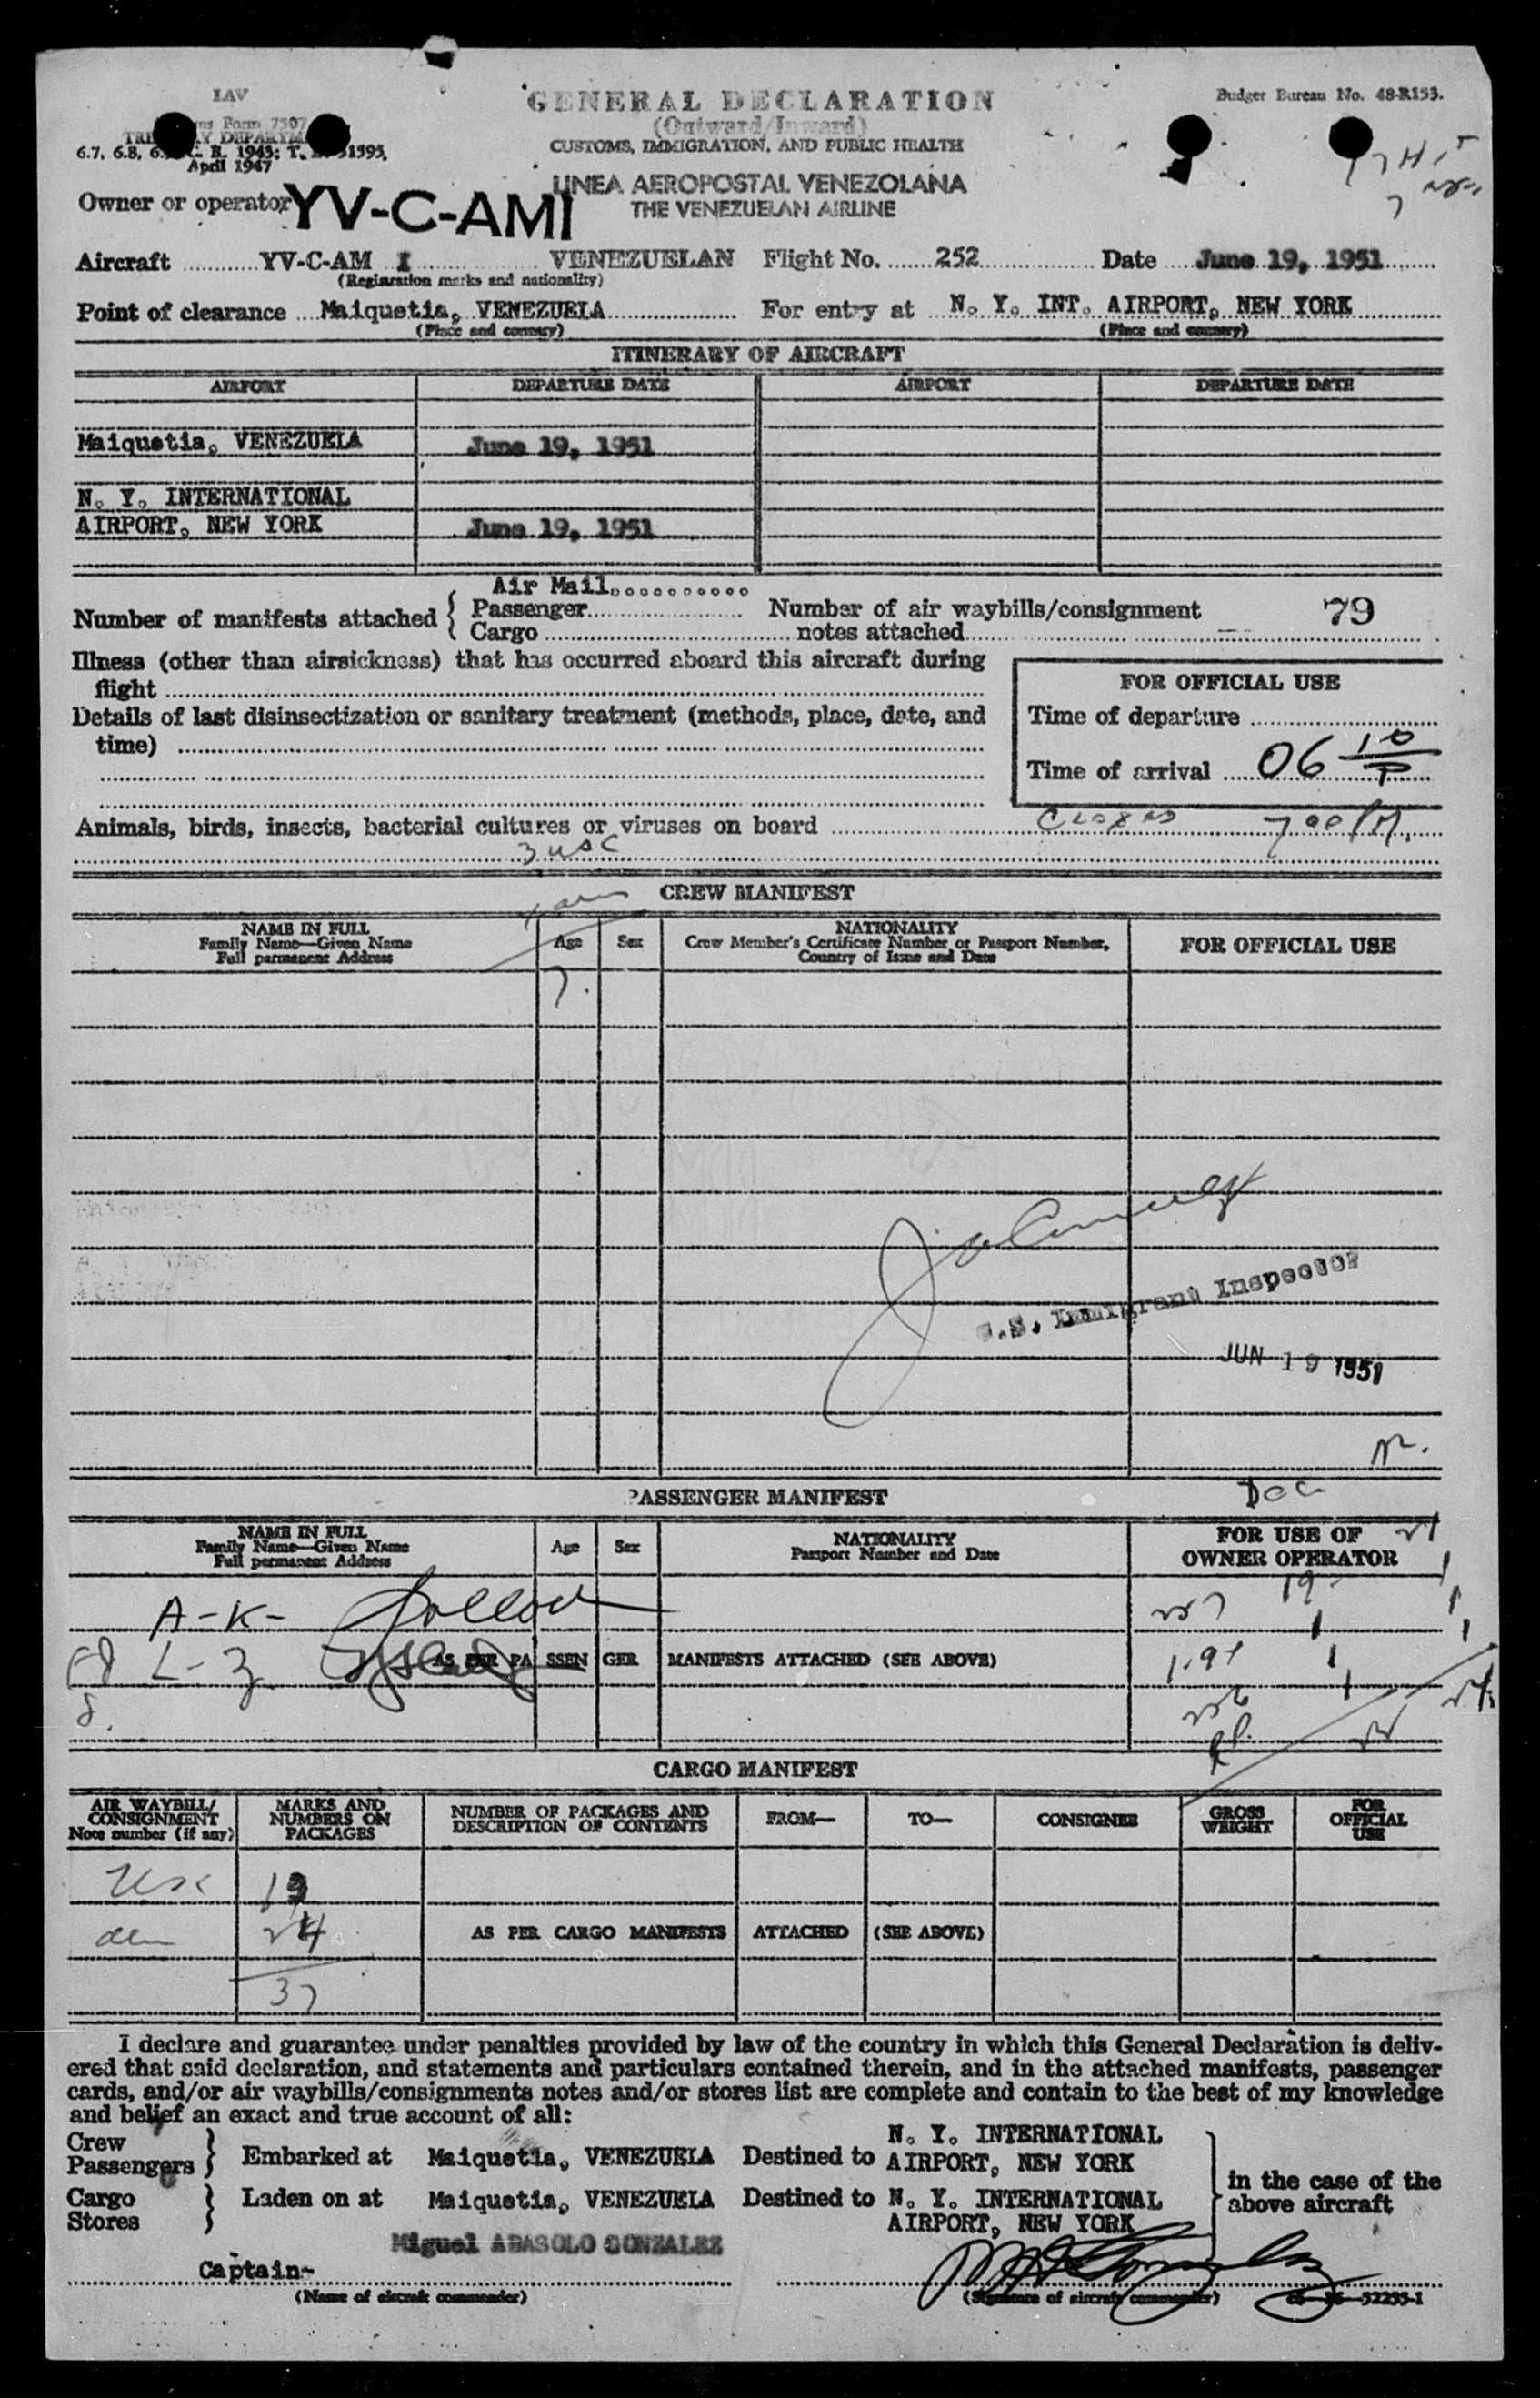 LAV
GENERAL DECLARATION
(Outward/Inward)
CUSTOMS, IMMIGRATION, AND PUBLIC HEALTH
Budget Bureau No. 48-R153.
Form 7507
6.7, 6.8, C. R. 1943; T. 51595,
April 1947
Owner or operator YV-C-AMI
LINEA AEROPOSTAL VENEZOLANA
THE VENEZUELAN AIRLINE
Aircraft YV-C-AM I VENEZUELAN Flight No. 252 Date June 19, 1951
(Registration marks and nationality)
Point of clearance Maiquetia, VENEZUELA For entry at N. Y. INT. AIRPORT, NEW YORK
(Place and country) (Place and country)
ITINERARY OF AIRCRAFT
AIRPORT DEPARTURE DATE AIRPORT DEPARTURE DATE
Maiquetia, VENEZUELA June 19, 1951
N. Y. INTERNATIONAL
AIRPORT, NEW YORK June 19, 1951
Air Mail
Number of manifests attached { Passenger Number of air waybills/consignment 79
Cargo notes attached
Illness (other than airsickness) that has occurred aboard this aircraft during
flight
FOR OFFICIAL USE
Details of last disinsectization or sanitary treatment (methods, place, date, and
time)
Time of departure
Time of arrival 06 10 P
Animals, birds, insects, bacterial cultures or viruses on board 700 PM.
3 usc
CREW MANIFEST
NAME IN FULL
Family Name—Given Name
Full permanent Address
Age Sex
NATIONALITY
Crew Member's Certificate Number or Passport Number,
Country of Issue and Date
FOR OFFICIAL USE
7.
U.S. Immigrant Inspector
JUN 19 1951
PASSENGER MANIFEST
NAME IN FULL
Family Name—Given Name
Full permanent Address
Age Sex
NATIONALITY
Passport Number and Date
FOR USE OF
OWNER OPERATOR
A-K-
L-Z
AS PER PASSENGER MANIFESTS ATTACHED (SEE ABOVE)
CARGO MANIFEST
AIR WAYBILL/
CONSIGNMENT
Note number (if any)
MARKS AND
NUMBERS ON
PACKAGES
NUMBER OF PACKAGES AND
DESCRIPTION OF CONTENTS
FROM— TO— CONSIGNEE
GROSS
WEIGHT
FOR
OFFICIAL
USE
usc 13
24
AS PER CARGO MANIFESTS ATTACHED (SEE ABOVE)
37
I declare and guarantee under penalties provided by law of the country in which this General Declaration is deliv-
ered that said declaration, and statements and particulars contained therein, and in the attached manifests, passenger
cards, and/or air waybills/consignments notes and/or stores list are complete and contain to the best of my knowledge
and belief an exact and true account of all:
Crew
Passengers } Embarked at Maiquetia, VENEZUELA Destined to N. Y. INTERNATIONAL
AIRPORT, NEW YORK
Cargo
Stores } Laden on at Maiquetia, VENEZUELA Destined to N. Y. INTERNATIONAL
AIRPORT, NEW YORK
in the case of the
above aircraft
Miguel ABASOLO GONZALEZ
Captain-
(Name of aircraft commander) (Signature of aircraft commander) 16—52295-1